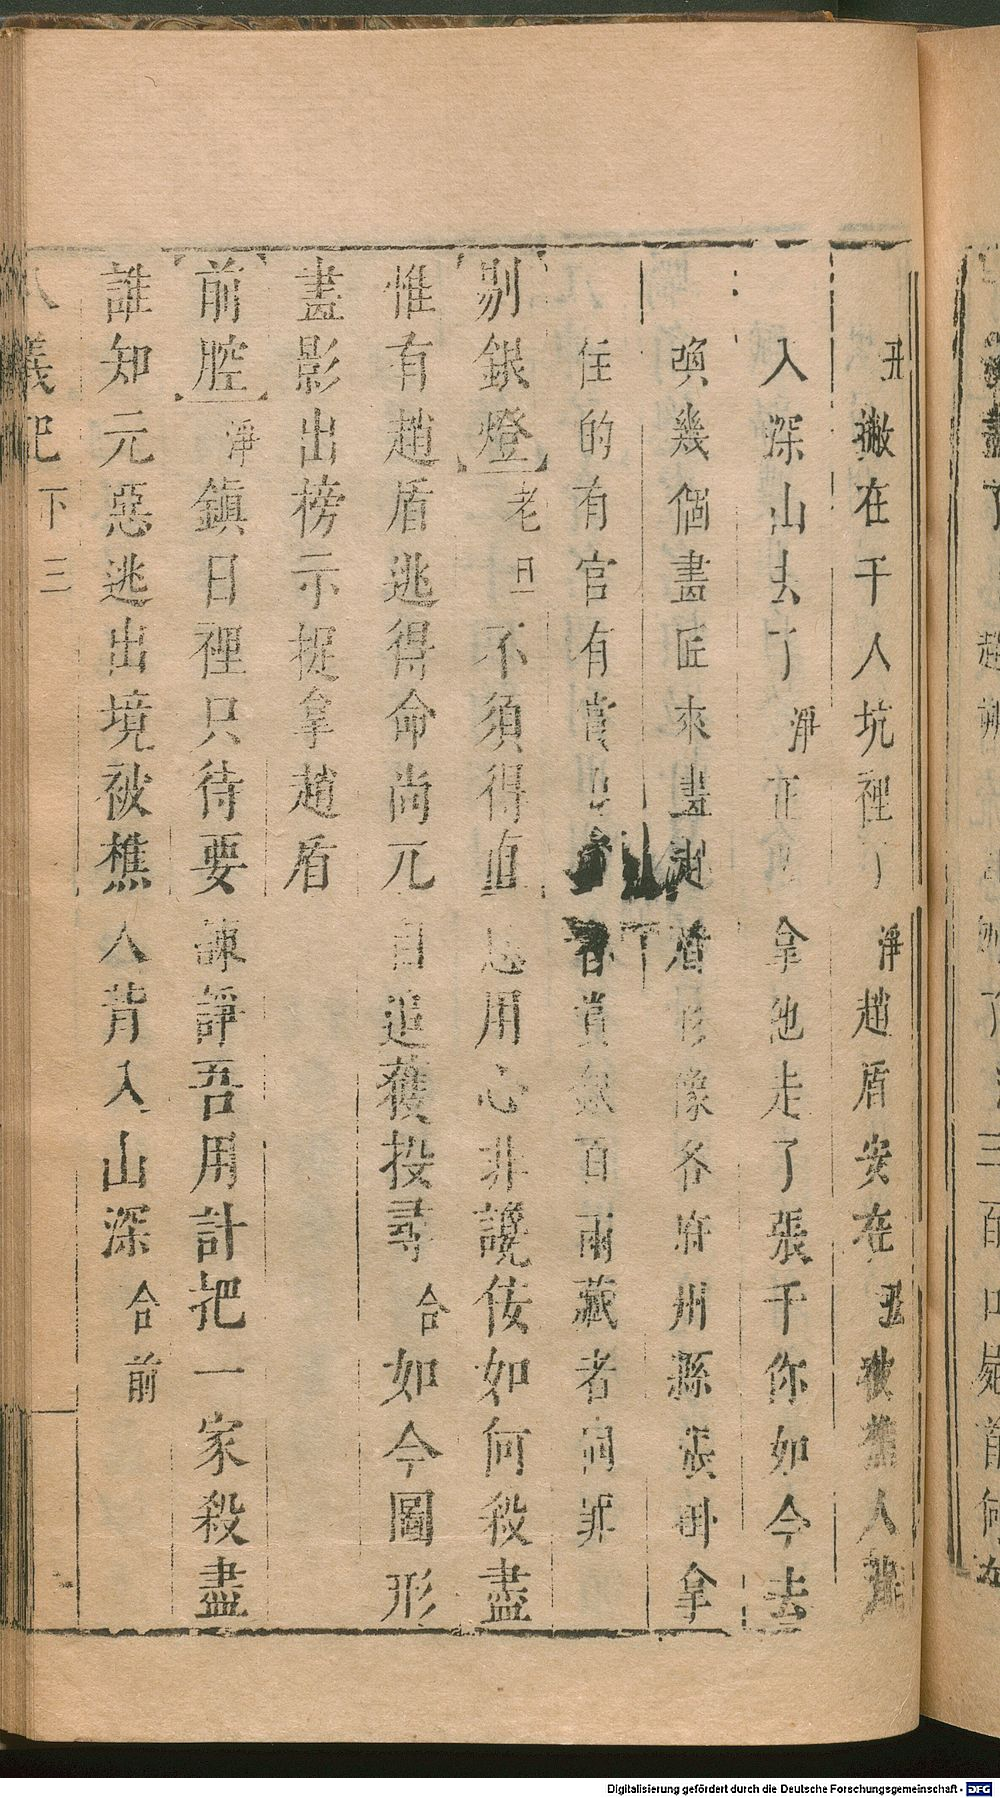 丑撇在千人坑裡了淨趙盾安在丑被樵人背
入深山去了淨正會拿他走了張千你如今去
喚幾個畫匠來畫趙盾影像各府州縣張掛拿
住的有官有賞首賞銀百兩藏者同罪
剔銀燈老旦不須得直恁用心非讒佞如何殺盡
惟有趙盾逃得命尚兀自追獲投尋合如今圖形
畫影出榜示捉拿趙盾
前腔淨鎮日裡只待要諫諍吾用計把一家殺盡
誰知元惡逃出境被樵人背入山深合前
八義記下三
Digitalisierung gefördert durch die Deutsche Forschungsgemeinschaft - DFG